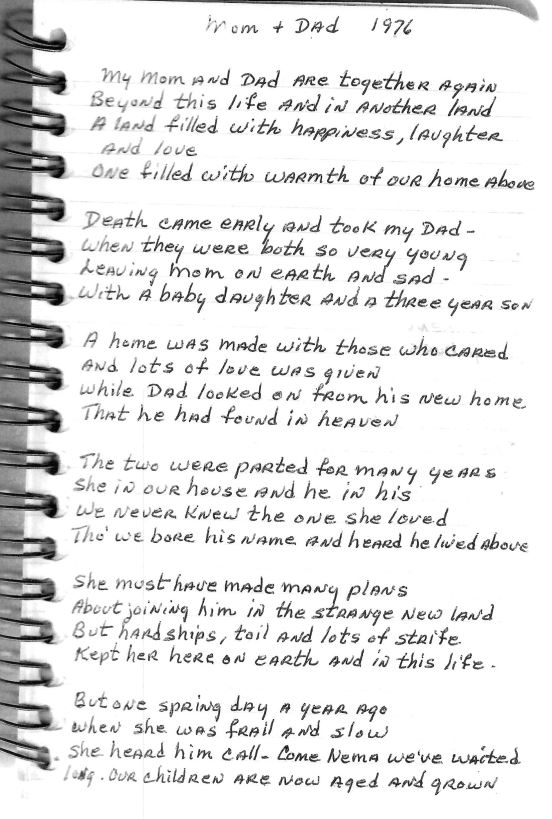 Mom + Dad 1976
My Mom and Dad are together again
Beyond this life and in another land
A land filled with happiness, laughter
and love
One filled with warmth of our home above
Death came early and took my Dad -
When they were both so very young
Leaving Mom on earth and sad -
With a baby daughter and a three year son
A home was made with those who cared
And lots of love was given
While Dad looked on from his new home
That he had found in heaven
The two were parted for many years
She in our house and he in his
We never knew the one she loved
Tho' we bore his name and heard he lived above
She must have made many plans
About joining him in the strange new land
But hardships, toil and lots of strife
Kept her here on earth and in this life.
But one spring day a year ago
When she was frail and slow
She heard him call - Come Nema we've waited
long. Our children are now aged and grown